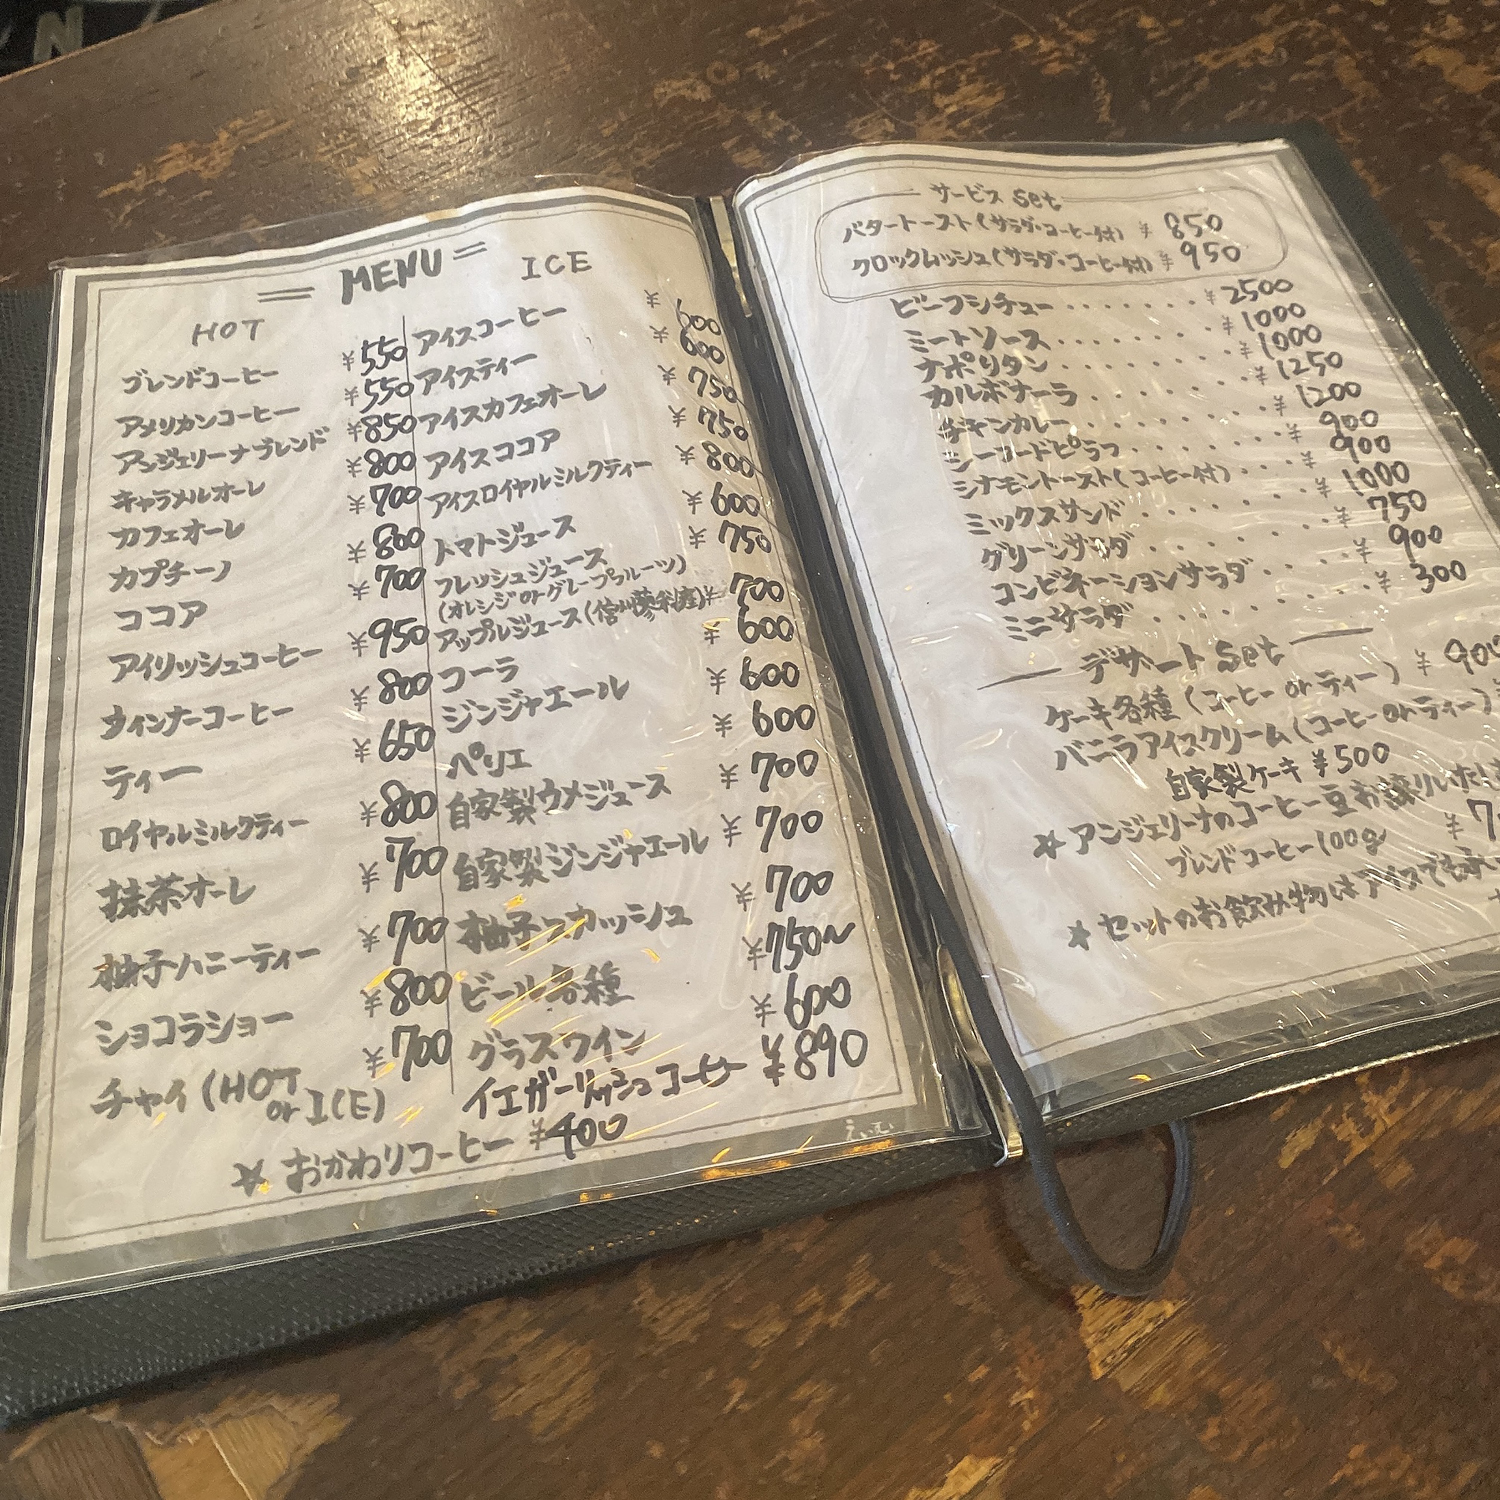 MENU
HOT
ブレンドコーヒー ¥550
アメリカンコーヒー ¥550
アンジェリーナブレンド ¥850
キャラメルオーレ ¥800
カフェオーレ ¥700
カプチーノ ¥800
ココア ¥700
アイリッシュコーヒー ¥950
ウィンナーコーヒー ¥800
ティー ¥650
ロイヤルミルクティー ¥800
抹茶オーレ ¥700
柚子ハニーティー ¥700
ショコラショー ¥800
チャイ(HOT or ICE) ¥700
ICE
アイスコーヒー ¥600
アイスティー ¥600
アイスカフェオーレ ¥750
アイスココア ¥750
アイスロイヤルミルクティー ¥800
トマトジュース ¥600
フレッシュジュース ¥750
(オレンジorグレープフルーツ)
アップルジュース ¥700
コーラ ¥600
ジンジャエール ¥600
ペリエ ¥600
自家製ウメジュース ¥700
自家製ジンジャエール ¥700
柚子スカッシュ ¥700
ビール各種 ¥750〜
グラスワイン ¥600
コーヒー ¥890
☆ おかわりコーヒー ¥400
サービスSet
バタートースト(サラダ・コーヒー付) ¥850
クロックムッシュ(サラダ・コーヒー付) ¥950
ビーフシチュー ・・・・・・・ ¥2500
ミートソース ・・・・・・・ ¥1000
ナポリタン ・・・・・・・ ¥1000
カルボナーラ ・・・・・・・ ¥1250
チキンカレー ・・・・・・・ ¥1200
シーフードピラフ ・・・・・・ ¥900
シナモントースト(コーヒー付) ・・・ ¥900
ミックスサンド ・・・・・・・ ¥1000
グリーンサラダ ・・・・・・・ ¥750
コンビネーションサラダ ・・・・ ¥900
ミニサラダ ・・・・・・・ ¥300
デザートSet
ケーキ各種(コーヒーorティー) ¥900
バニラアイスクリーム(コーヒーorティー)
自家製ケーキ ¥500
☆ アンジェリーナのコーヒー豆お譲りいたし
ブレンドコーヒー100g ¥7
☆ セットのお飲み物はアイスでも